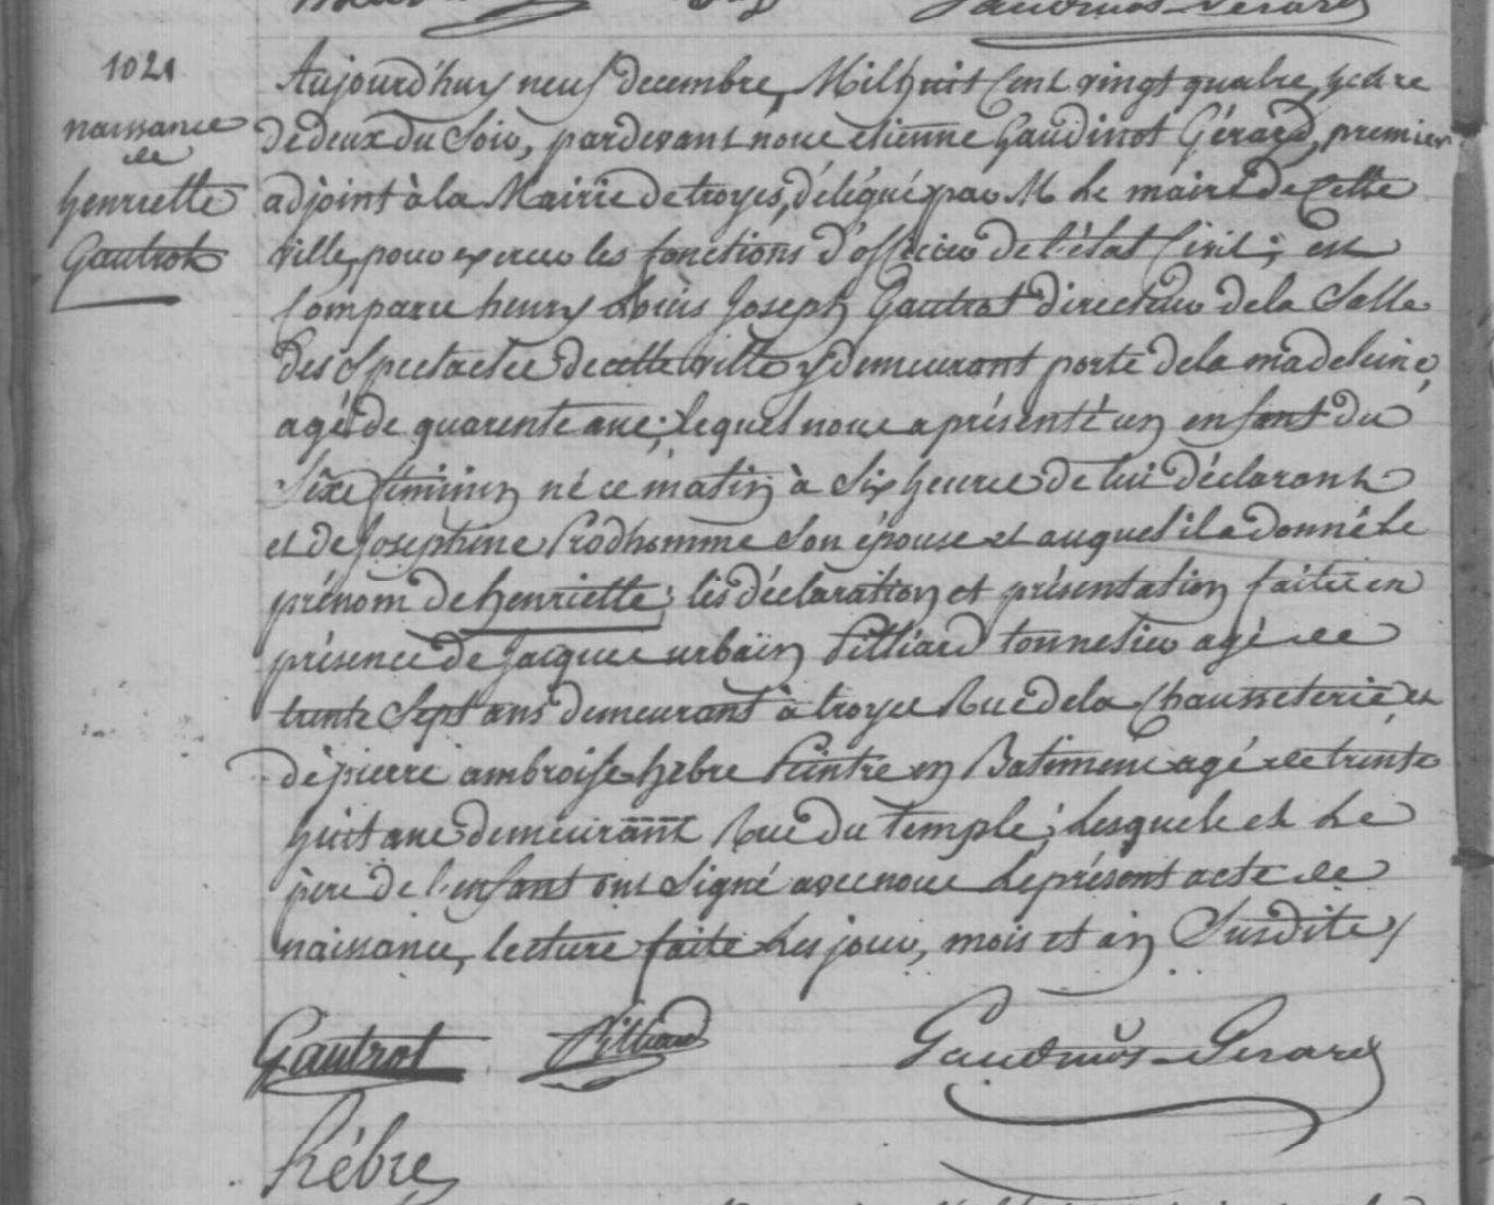 1021
naissance
de
henriette
Gautrot
Aujourd'huy neuf decembre, Mil huit Cent vingt quatre, heure
de deux du Soir, pardevant nous etienne Gaudinot Gérard, premier
adjoint à la Mairie de troyes, délégué par M Le maire de Cette
ville, pour exercer les fonctions d'officier de l'état Civil; est
Comparu henry Louis Joseph Gautrot directeur de la Salle
des Spectacles de cette ville y demeurant porte de la madeleine,
agé de quarente ans; lequel nous a présenté un enfant du
Sexe feminin né ce matin à Six heures de lui déclarant
et de Josephine Prodhomme Son épouse et auquel il a donné Le
prénom de henriette; les déclaration et présentation faites en
présence de Jacques urbain Pilliard tonnelier agé de
trente Sept ans demeurant à troyes Rue de la Chausseterie et
de pierre ambroise hebre Peintre en Batiment agé de trente
huit ans demeurant Rue du Temple; Lesquels et Le
pere de l'enfant ont Signé avec nous Le présent acte de
naissance, lecture faite Les jour, mois et an Susdits /
Gautrot Pilliard Gaudinot-Gerard
Hébre